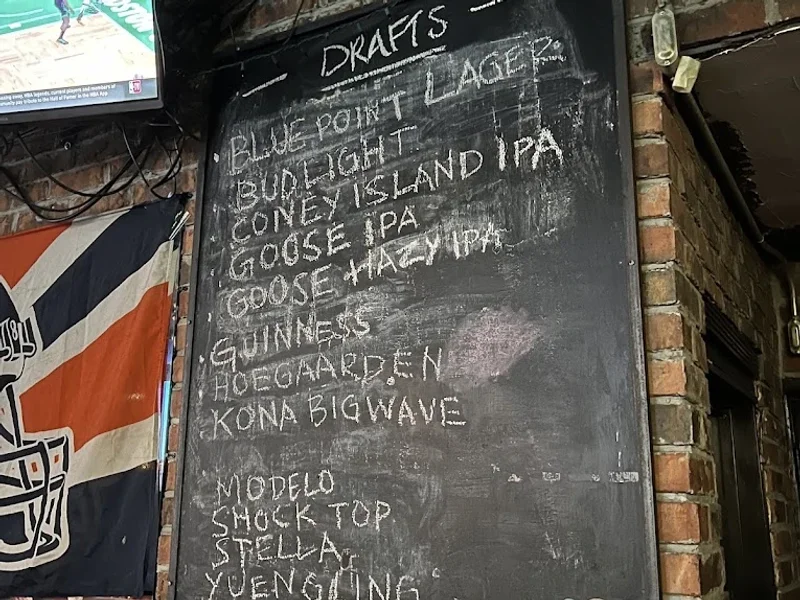 DRAFTS
BLUE POINT LAGER
BUDLIGHT
CONEY ISLAND IPA
GOOSE IPA
GOOSE HAZY IPA
GUINNESS
HOEGAARDEN
KONA BIGWAVE
MODELO
SHOCK TOP
STELLA
YUENGLING